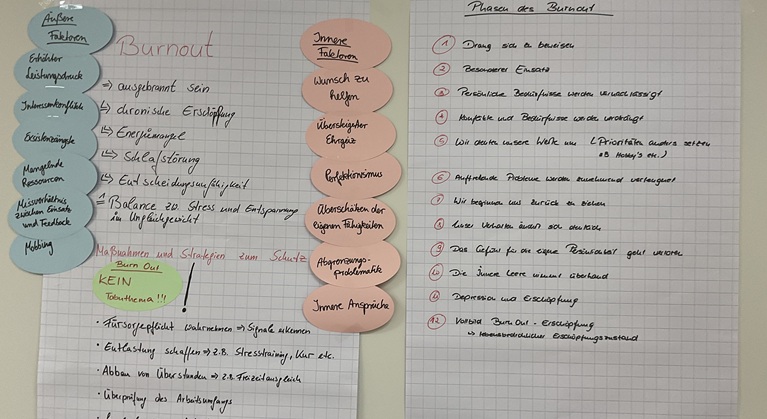 Äußere
Faktoren
Erhöhter
Leistungsdruck
Interessenkonflikte
Existenzängste
Mangelnde
Ressourcen
Missverhältnis
zwischen Einsatz
und Feedback
Mobbing
Burnout
=> ausgebrannt sein
chronische Erschöpfung
Energiemangel
Schlafstörung
Entscheidungsunfähigkeit
= Balance zw. Stress und Entspannung
im Ungleichgewicht
Maßnahmen und Strategien zum Schutz
Burn Out
KEIN
Tabuthema!!!
!
• Fürsorgepflicht wahrnehmen => Signale erkennen
• Entlastung schaffen => z.B. Stresstraining, Kur etc.
• Abbau von Überstunden => z.B. Freizeitausgleich
• Überprüfung des Arbeitsumfangs
Innere
Faktoren
Wunsch zu
helfen
Übersteigerter
Ehrgeiz
Perfektionismus
Überschätzen der
eigenen Fähigkeiten
Abgrenzungs-
problematik
Innere Ansprüche
Phasen des Burnout
1 Drang sich zu beweisen
2 Besonderer Einsatz
3 Persönliche Bedürfnisse werden vernachlässigt
4 Konflikte und Bedürfnisse werden verdrängt
5 Wir deuten unsere Werte um (Prioritäten anders setzen
zB Hobby's etc.)
6 Auftretende Probleme werden zunehmend verleugnet
7 Wir beginnen uns zurück zu ziehen
8 Unser Verhalten ändert sich deutlich
9 Das Gefühl für die eigene Persönlichkeit geht verloren
10 Die Innere Leere nimmt überhand
11 Depression und Erschöpfung
12 Burn Out - Erschöpfung
Erschöpfungszustand